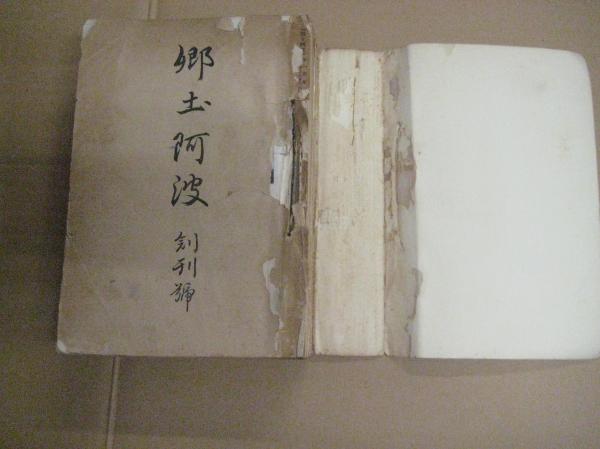 郷土阿波
創刊號